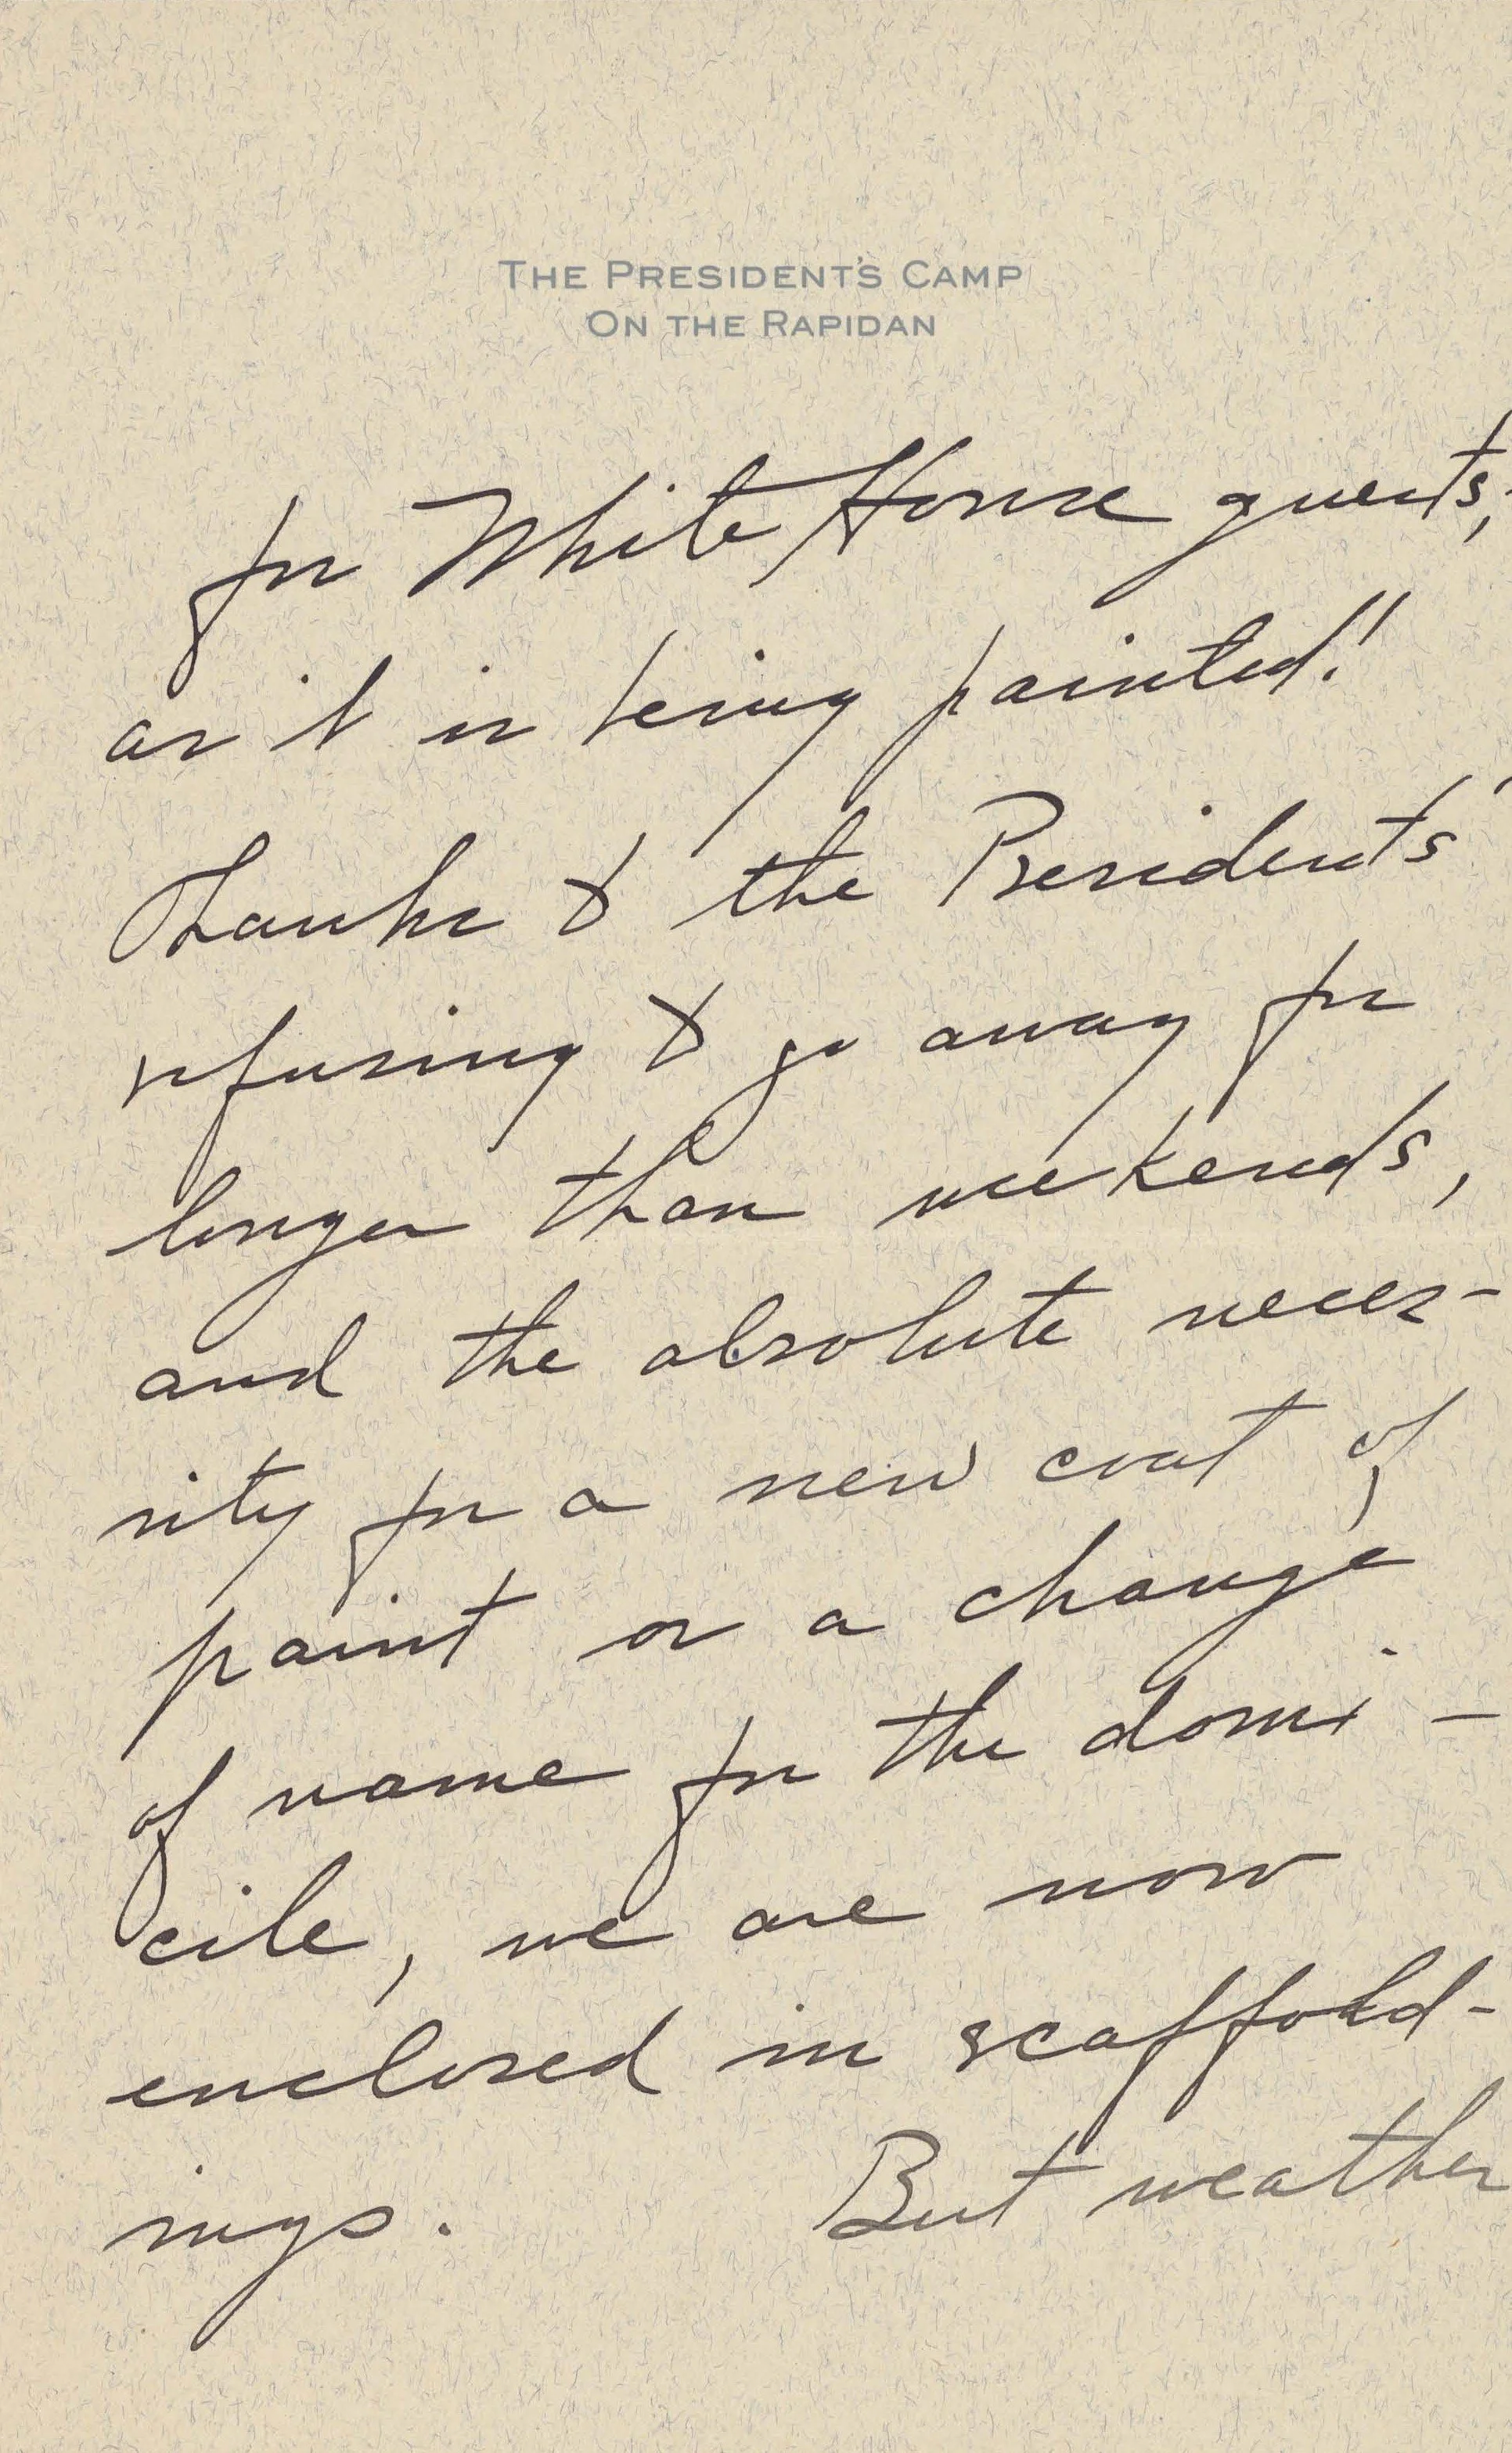 THE PRESIDENT'S CAMP
ON THE RAPIDAN
for White House guests,
as it is being painted!
Thanks to the Presidents'
refusing to go away for
longer than weekends,
and the absolute neces-
sity for a new coat of
paint or a change
of name for the domi-
cile, we are now
enclosed in scaffold-
ings. But weather